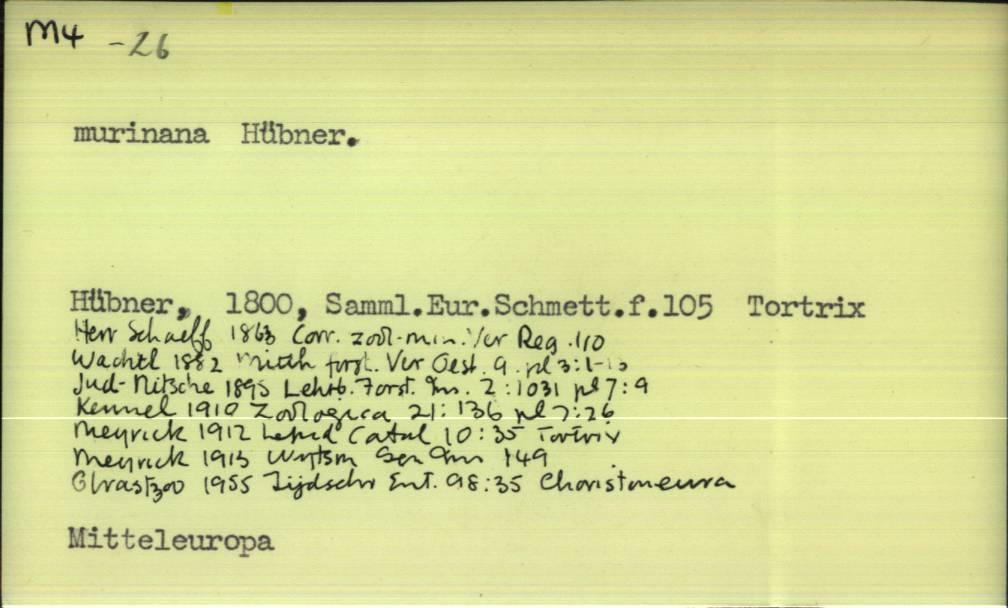 M4 -26
murinana Hübner.
Hübner, 1800, Samml.Eur.Schmett.f.105 Tortrix
Herr Schaeff 1863 Corr. zool-min. Ver Reg. 110
Wachtl 1882 Mitth forst. Ver Oest. 9. pl 3:1-13
Jud-Nitsche 1895 Lehrb. Forst. Ins. 2:1031 pl 7:9
Kennel 1910 Zoologica 21:136 pl 7:26
Meyrick 1912 Lepid Catal 10:35 Tortrix
Meyrick 1913 Wytsm Gen Ins 149
1955 Tijdschr Ent. 98:35 Choristoneura
Mitteleuropa